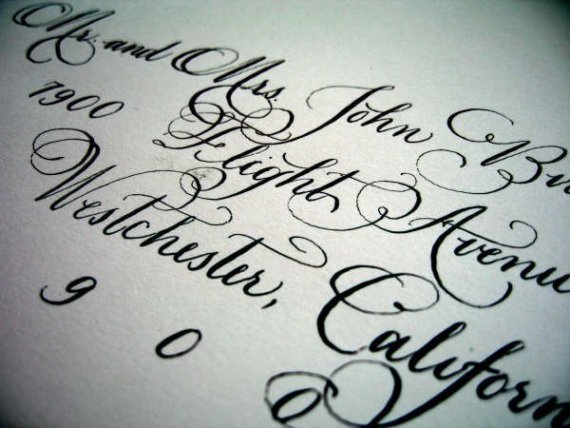 Mr. and Mrs. John
7900 Flight Avenu
Westchester, Californ
900